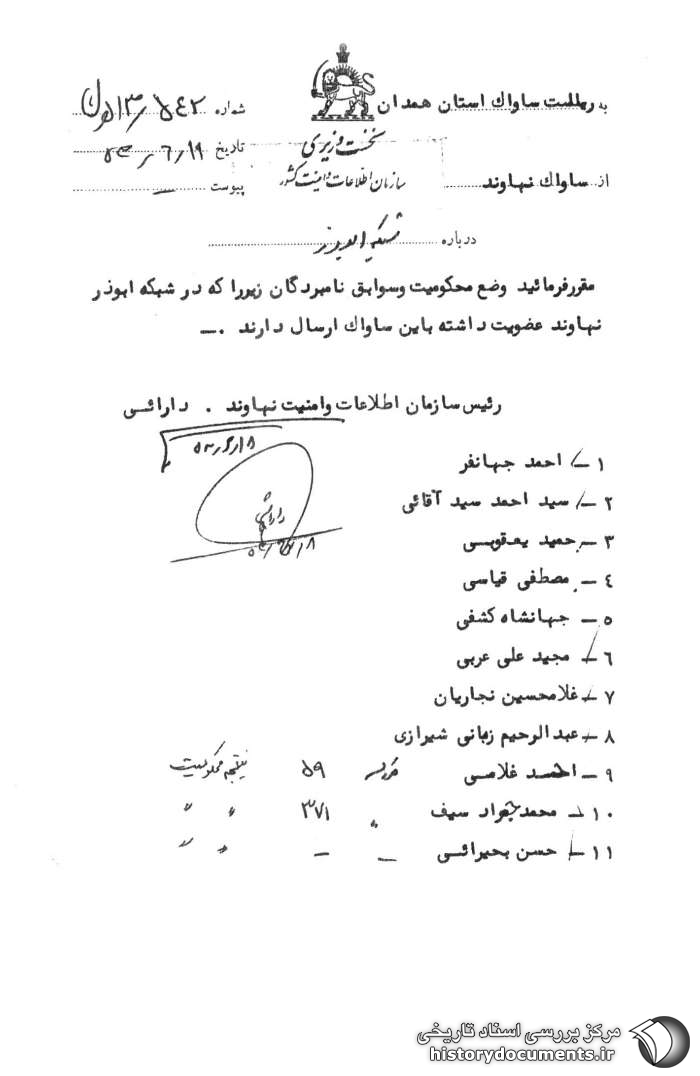 به ریاست ساواك استان همدان
شماره ۵۴۲/۱۳
نخست وزیری
تاریخ ۱۹/۶/۵۳
از ساواك نهاوند
سازمان اطلاعات و امنیت کشور
پیوست
درباره شبکه ابوذر
مقررفرمائید وضع محکومیت وسوابق نامبردگان زیررا که در شبکه ابوذر
نهاوند عضویت داشته باین ساواك ارسال دارند .ــ
رئیس سازمان اطلاعات وامنیت نهاوند . دارائـی
۱ ــ احمد جهانفر
۲ ــ سید احمد سید آقائی
۳ ــ حمید یعقوبـی
دارائی
۴ ــ مصطفی قیاسی
۵ ــ جهانشاه کشفی
۶ ــ مجید علی عربی
۷ ــ غلامحسین نجاریان
۸ ــ عبدالرحیم زمانی شیرازی
۹ ــ احمد غلامـی ۵۹ نتیجه محکومیت
۱۰ ــ محمدجواد سیف " ۳۷۱ " "
۱۱ ــ حسن بحیرائـی ــ ــ " "
مرکز بررسی اسناد تاریخی
historydocuments.ir